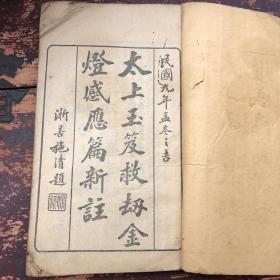 民國九年孟冬之吉
太上玉笈救劫金
燈感應篇新註
浙善施清題